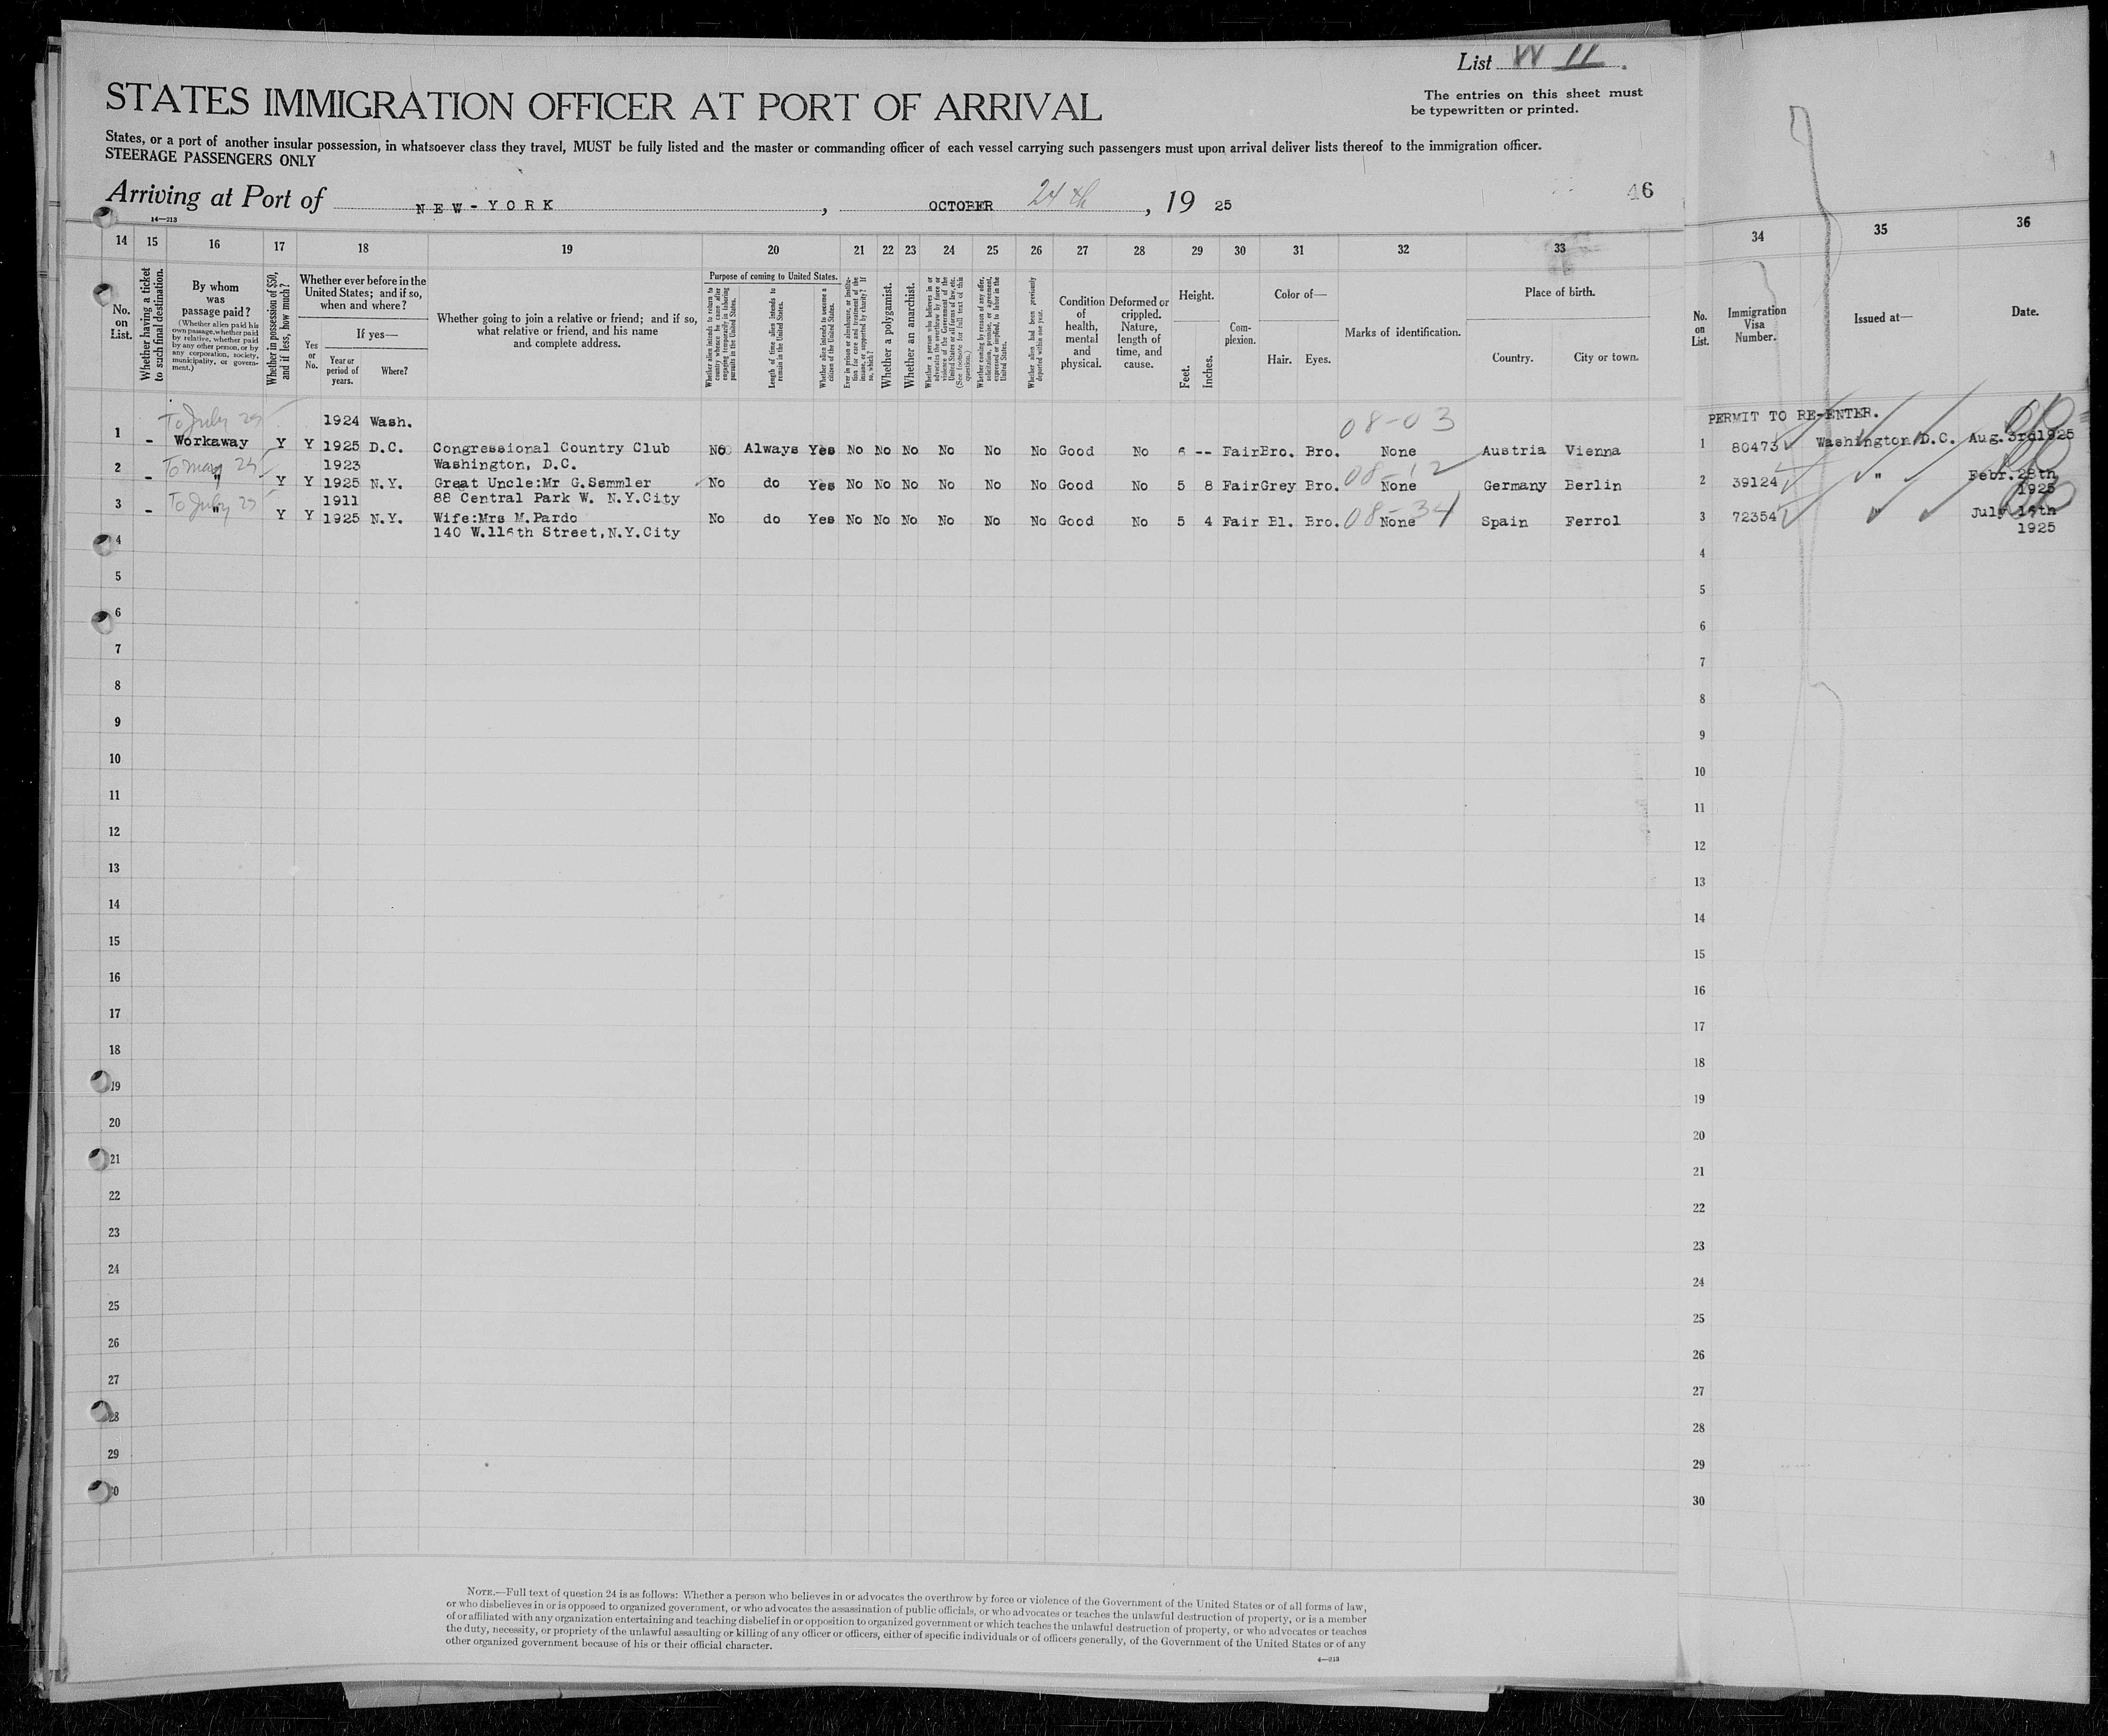 List W 11.
The entries on this sheet must
be typewritten or printed.
STATES IMMIGRATION OFFICER AT PORT OF ARRIVAL
States, or a port of another insular possession, in whatsoever class they travel, MUST be fully listed and the master or commanding officer of each vessel carrying such passengers must upon arrival deliver lists thereof to the immigration officer.
STEERAGE PASSENGERS ONLY
Arriving at Port of NEW-YORK, OCTOBER 24th, 19 25
46
14—213
14 15 16 17 18 19 20 21 22 23 24 25 26 27 28 29 30 31 32 33 34 35 36
No. on List.
Whether having a ticket to such final destination.
By whom was passage paid?
(Whether alien paid his own passage, whether paid by relative, whether paid by any other person, or by any corporation, society, municipality, or government.)
Whether in possession of $50, and if less, how much?
Whether ever before in the United States; and if so, when and where?
Yes or No.
If yes—
Year or period of years.
Where?
Whether going to join a relative or friend; and if so, what relative or friend, and his name and complete address.
Purpose of coming to United States.
Whether alien intends to return to country whence he came after engaging temporarily in laboring pursuits in the United States.
Length of time alien intends to remain in the United States.
Whether alien intends to become a citizen of the United States.
Ever in prison or almshouse, or institution for care and treatment of the insane, or supported by charity? If so, which?
Whether a polygamist.
Whether an anarchist.
Whether a person who believes in or advocates the overthrow by force or violence of the Government of the United States or all forms of law, etc. (See footnote for full text of this question.)
Whether coming by reason of any offer, solicitation, promise, or agreement, expressed or implied, to labor in the United States.
Whether alien had been previously deported within one year.
Condition of health, mental and physical.
Deformed or crippled. Nature, length of time, and cause.
Height.
Feet. Inches.
Complexion.
Color of—
Hair. Eyes.
Marks of identification.
Place of birth.
Country. City or town.
No. on List.
Immigration Visa Number.
Issued at—
Date.
To July 25
1924 Wash.
08-03
PERMIT TO RE-ENTER.
1 - Workaway Y Y 1925 D.C. Congressional Country Club No Always Yes No No No No No No Good No 6 -- Fair Bro. Bro. None Austria Vienna 1 80473 Washington D.C. Aug. 3rd 1925
To May 25 1923 Washington, D.C. 08-12
2 - " Y Y 1925 N.Y. Great Uncle:Mr G.Semmler No do Yes No No No No No No Good No 5 8 Fair Grey Bro. None Germany Berlin 2 39124 " Febr. 28th 1925
To July 25 1911 88 Central Park W. N.Y.City
3 - " Y Y 1925 N.Y. Wife:Mrs M.Pardo No do Yes No No No No No No Good No 5 4 Fair Bl. Bro. 08-34 None Spain Ferrol 3 72354 July 15th 1925
4 140 W.116th Street,N.Y.City 4
5 5
6 6
7 7
8 8
9 9
10 10
11 11
12 12
13 13
14 14
15 15
16 16
17 17
18 18
19 19
20 20
21 21
22 22
23 23
24 24
25 25
26 26
27 27
28 28
29 29
30 30
NOTE.—Full text of question 24 is as follows: Whether a person who believes in or advocates the overthrow by force or violence of the Government of the United States or of all forms of law,
or who disbelieves in or is opposed to organized government, or who advocates the assassination of public officials, or who advocates or teaches the unlawful destruction of property, or is a member
of or affiliated with any organization entertaining and teaching disbelief in or opposition to organized government or which teaches the unlawful destruction of property, or who advocates or teaches
the duty, necessity, or propriety of the unlawful assaulting or killing of any officer or officers, either of specific individuals or of officers generally, of the Government of the United States or of any
other organized government because of his or their official character.
4—213